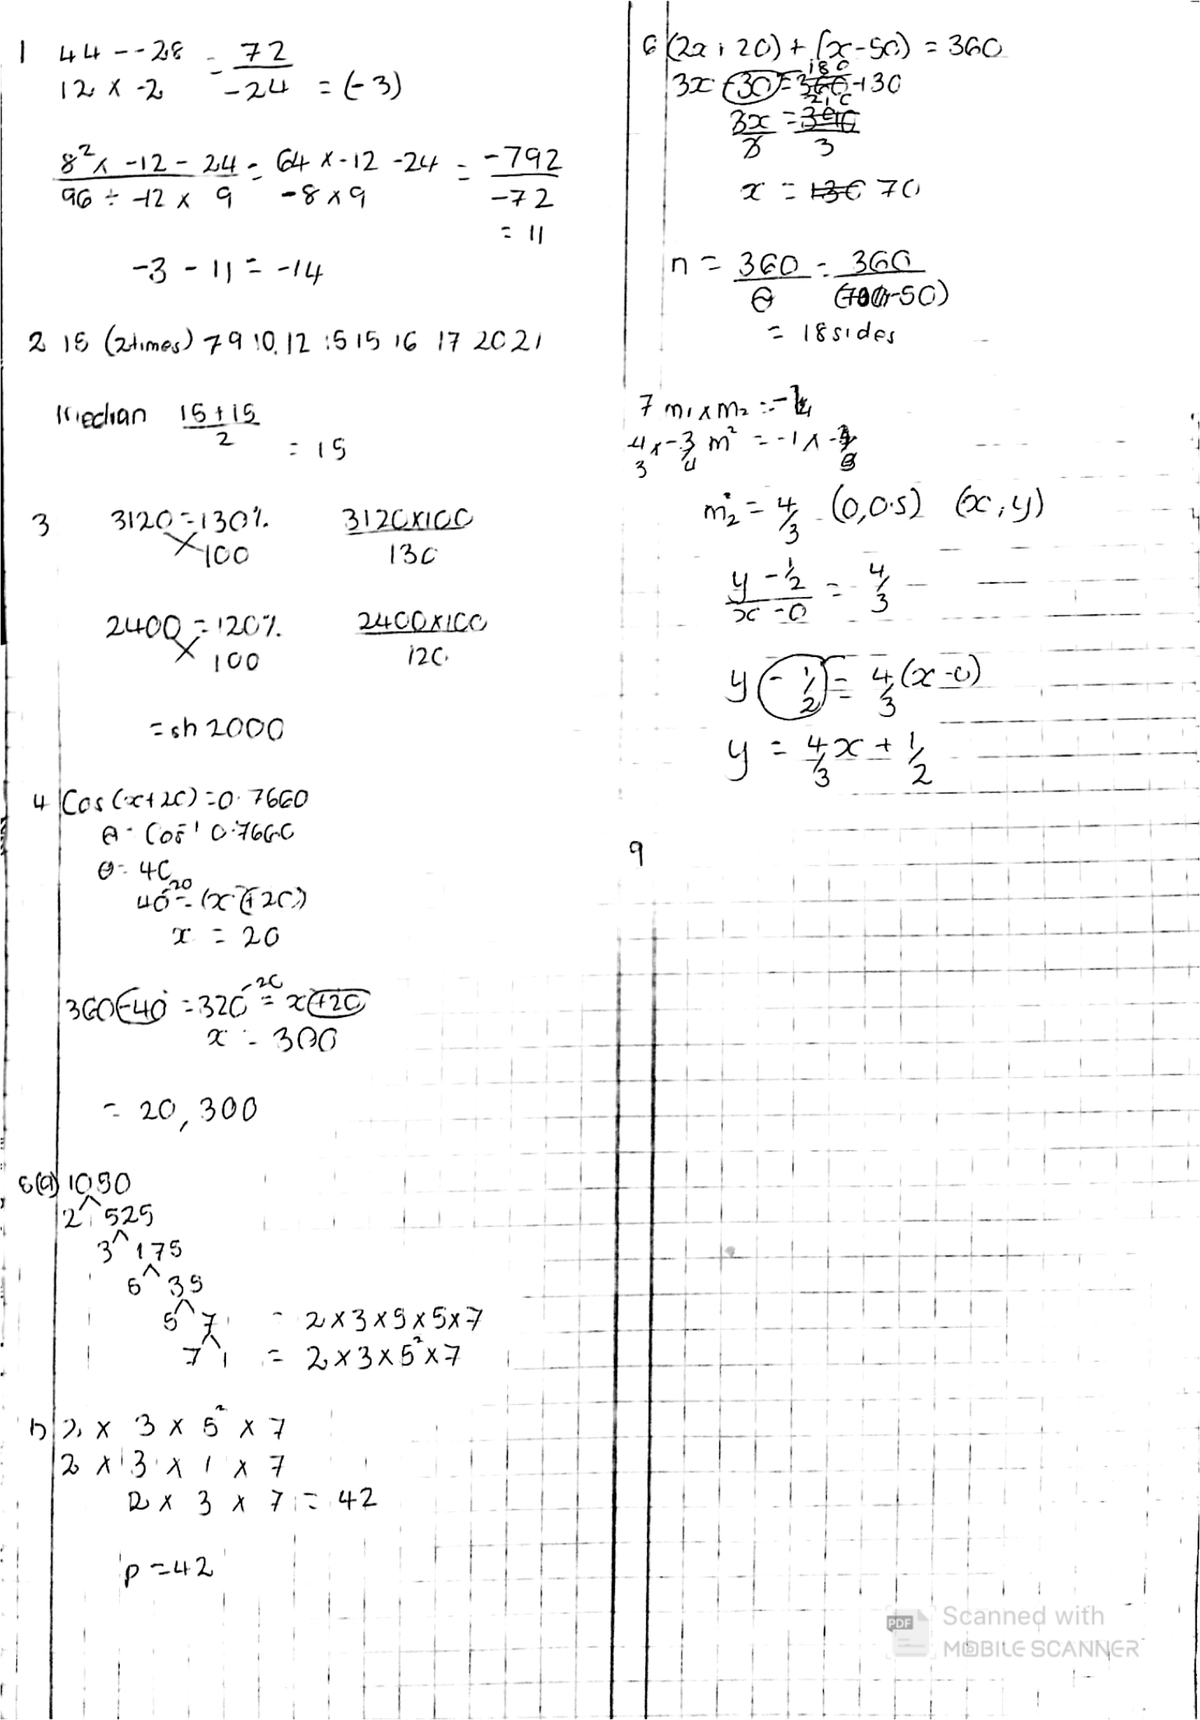 1 44 - -28 = 72
12 x -2 -24 = (-3)
8² x -12 - 24 = 64 x -12 -24 = -792
96 ÷ -12 x 9 -8 x 9 -72
= 11
-3 - 11 = -14
2 15 (2times) 7 9 10, 12 15 15 16 17 20 21
Median 15 + 15
2
= 15
3 3120 = 130% 3120x100
100 130
2400 = 120% 2400x100
100 120
= sh 2000
4 Cos (x+20) = 0.7660
θ = Cos⁻¹ 0.7660
θ = 40
40 -20 = (x + 20)
x = 20
360 - 40 = 320 -20 = x + 20
x = 300
= 20, 300
5(a) 1050
2 525
3 175
5 35
5 7 = 2 x 3 x 5 x 5 x 7
7 1 = 2 x 3 x 5² x 7
b) 2 x 3 x 5² x 7
2 x 3 x 1 x 7
2 x 3 x 7 = 42
p = 42
6 (2x + 20) + (x - 50) = 360
180
3x - 30 = 360 +30
210
3x = 390
3 3
x = 130 70
n = 360 = 360
θ -50)
= 18 sides
7 m₁ x m₂ = -1
4/3 x -3/4 m² = -1 x
m₂ = 4/3 (0, 0.5) (x, y)
y - 1/2 = 4/3
x - 0
y - 1/2 = 4/3 (x - 0)
y = 4/3 x + 1/2
9
PDF Scanned with
MOBILE SCANNER